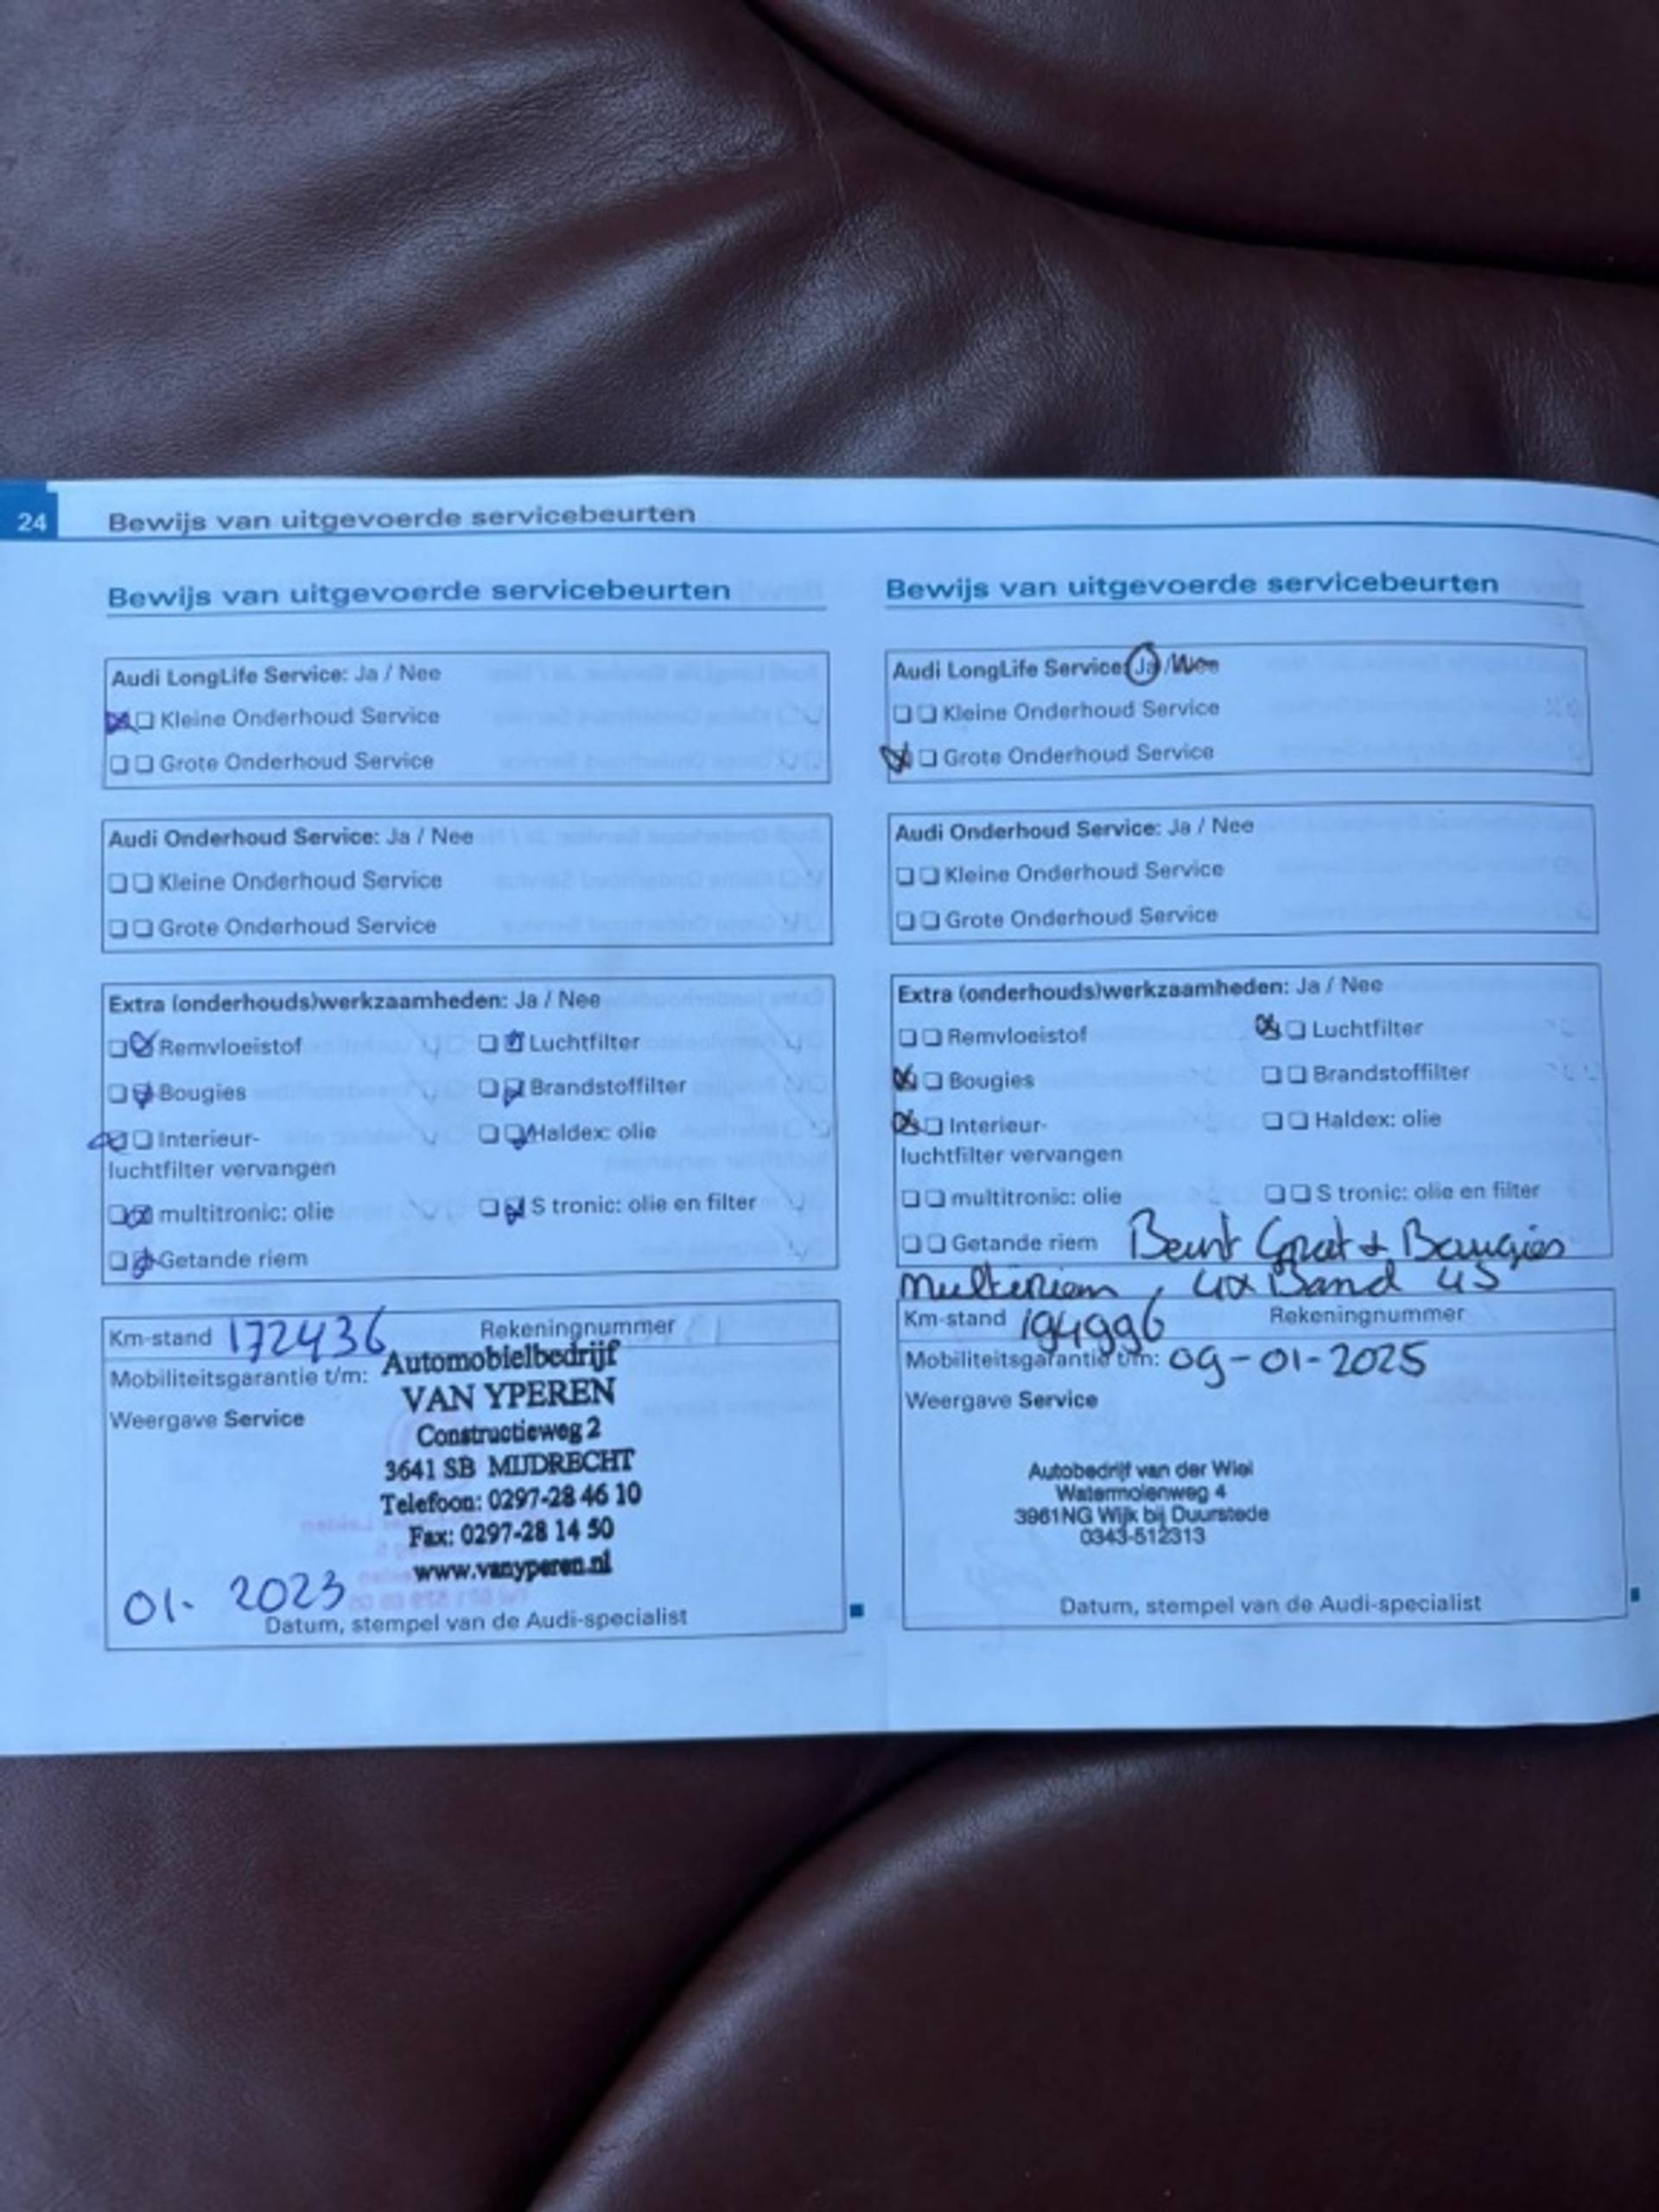 24
Bewijs van uitgevoerde servicebeurten
Bewijs van uitgevoerde servicebeurten
Audi LongLife Service: Ja / Nee
Kleine Onderhoud Service
Grote Onderhoud Service
Audi Onderhoud Service: Ja / Nee
Kleine Onderhoud Service
Grote Onderhoud Service
Extra (onderhouds)werkzaamheden: Ja / Nee
Remvloeistof Luchtfilter
Bougies Brandstoffilter
Interieur- Haldex: olie
luchtfilter vervangen
multitronic: olie S tronic: olie en filter
Getande riem
Km-stand 172436 Rekeningnummer
Mobiliteitsgarantie t/m:
Weergave Service
Automobielbedrijf
VAN YPEREN
Constructieweg 2
3641 SB MIJDRECHT
Telefoon: 0297-28 46 10
Fax: 0297-28 14 50
www.vanyperen.nl
01- 2023
Datum, stempel van de Audi-specialist
Bewijs van uitgevoerde servicebeurten
Audi LongLife Service: Ja / Nee
Kleine Onderhoud Service
Grote Onderhoud Service
Audi Onderhoud Service: Ja / Nee
Kleine Onderhoud Service
Grote Onderhoud Service
Extra (onderhouds)werkzaamheden: Ja / Nee
Remvloeistof Luchtfilter
Bougies Brandstoffilter
Interieur- Haldex: olie
luchtfilter vervangen
multitronic: olie S tronic: olie en filter
Getande riem Beurt Groot + Bougies
Multiriem, 4x Band 45
Km-stand 194996 Rekeningnummer
Mobiliteitsgarantie t/m: 09-01-2025
Weergave Service
Autobedrijf van der Wiel
Watermolenweg 4
3961NG Wijk bij Duurstede
0343-512313
Datum, stempel van de Audi-specialist